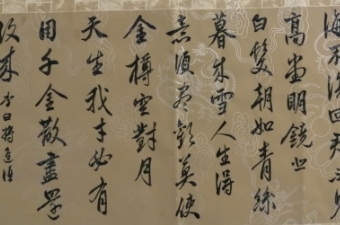 海不復回君不見
高堂明鏡悲
白髮朝如青絲
暮成雪人生得
意須盡歡莫使
金樽空對月
天生我才必有
用千金散盡還
復來 李白將進酒